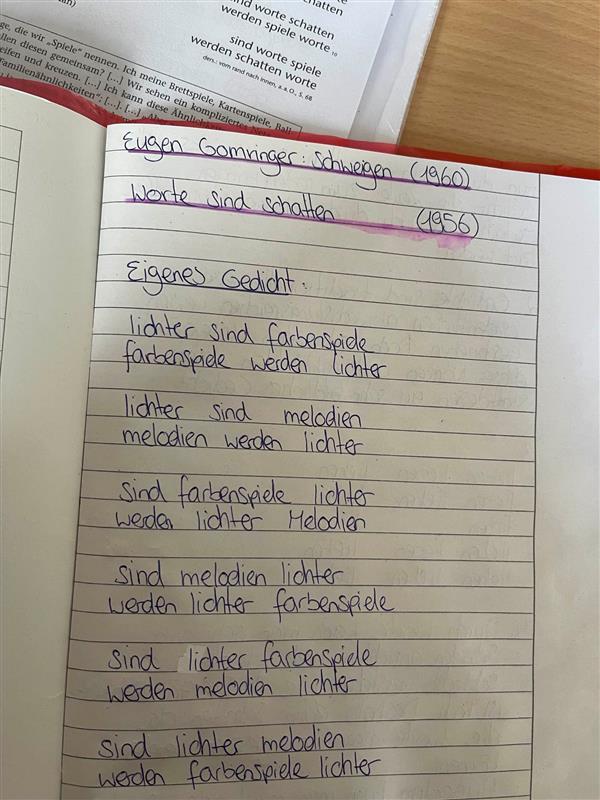 schatten
werden spiele worte 10
sind worte spiele
werden schatten worte
den.: vom rand nach innen, a.a.O., S. 68
ge, die wir „Spiele“ nennen. Ich meine Brettspiele, Kartenspiele, Ball-
llen diesen gemeinsam? [...] Wir sehen ein kompliziertes Netz
eifen und kreuzen. [...] Ich kann diese Ähnlichkeiten
Familienähnlichkeiten“; [...]. [...]
Eugen Gomringer: Schweigen (1960)
Worte sind schatten (1956)
Eigenes Gedicht:
lichter sind farbenspiele
farbenspiele werden lichter
lichter sind melodien
melodien werden lichter
sind farbenspiele lichter
werden lichter Melodien
sind melodien lichter
werden lichter farbenspiele
sind lichter farbenspiele
werden melodien lichter
sind lichter melodien
werden farbenspiele lichter